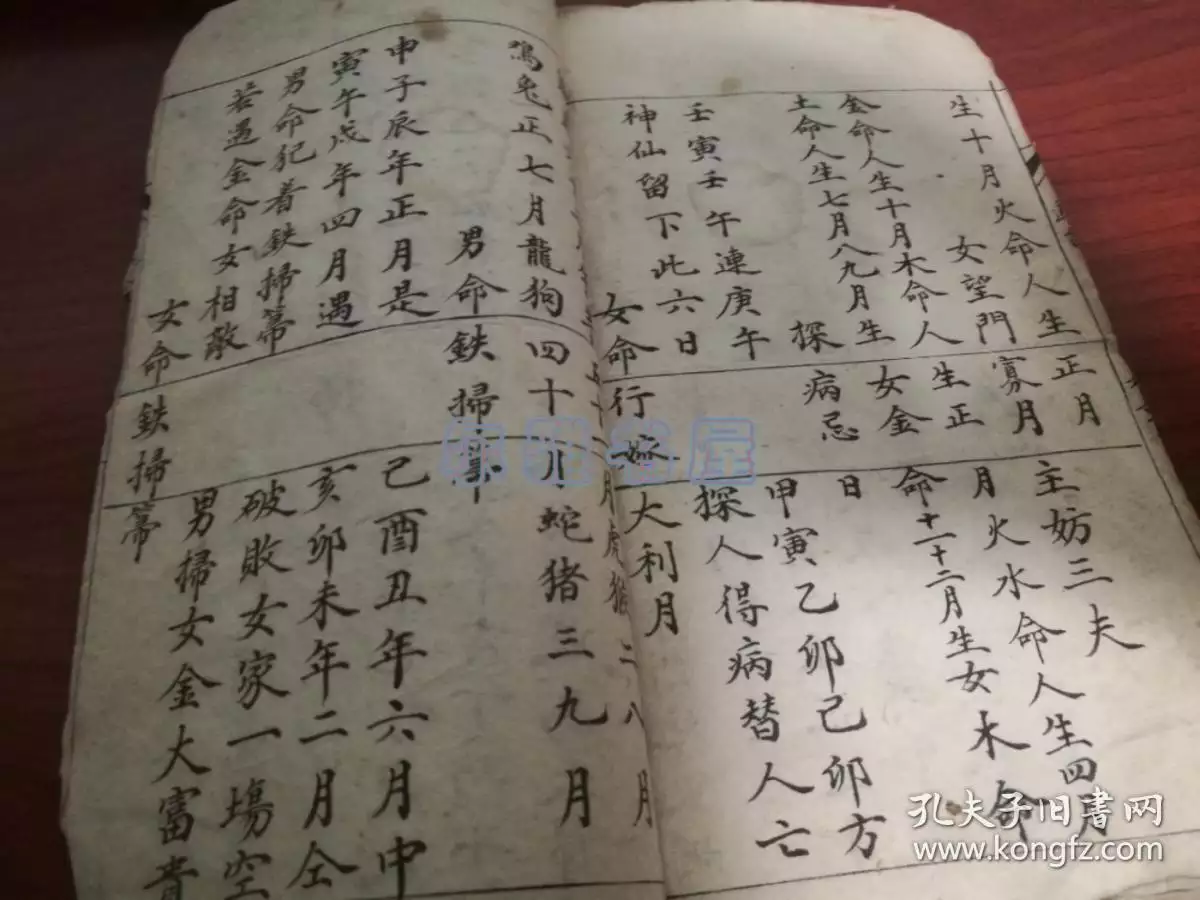 生十月火命人生正月主妨三夫
女望門寡月
月火水命人生四月
金命人生十月木命人生正
土命人生七月八九月生女金
命十一十二月生女木命
探病忌日
壬寅壬午連庚午
甲寅乙卯己卯方
神仙留下此六日
探人得病替人亡
女命行嫁大利月
月虎猴二八月
鸡兔正七月龍狗四十月蛇猪三九月
男命鉄掃帚
申子辰年正月是
己酉丑年六月中
寅午戌年四月遇
亥卯未年二月仝
男命犯着鉄掃帚
破敗女家一場空
若遇金命女相敵
男掃女金大富貴
女命鉄掃帚
孔夫子旧书网
www.kongfz.com